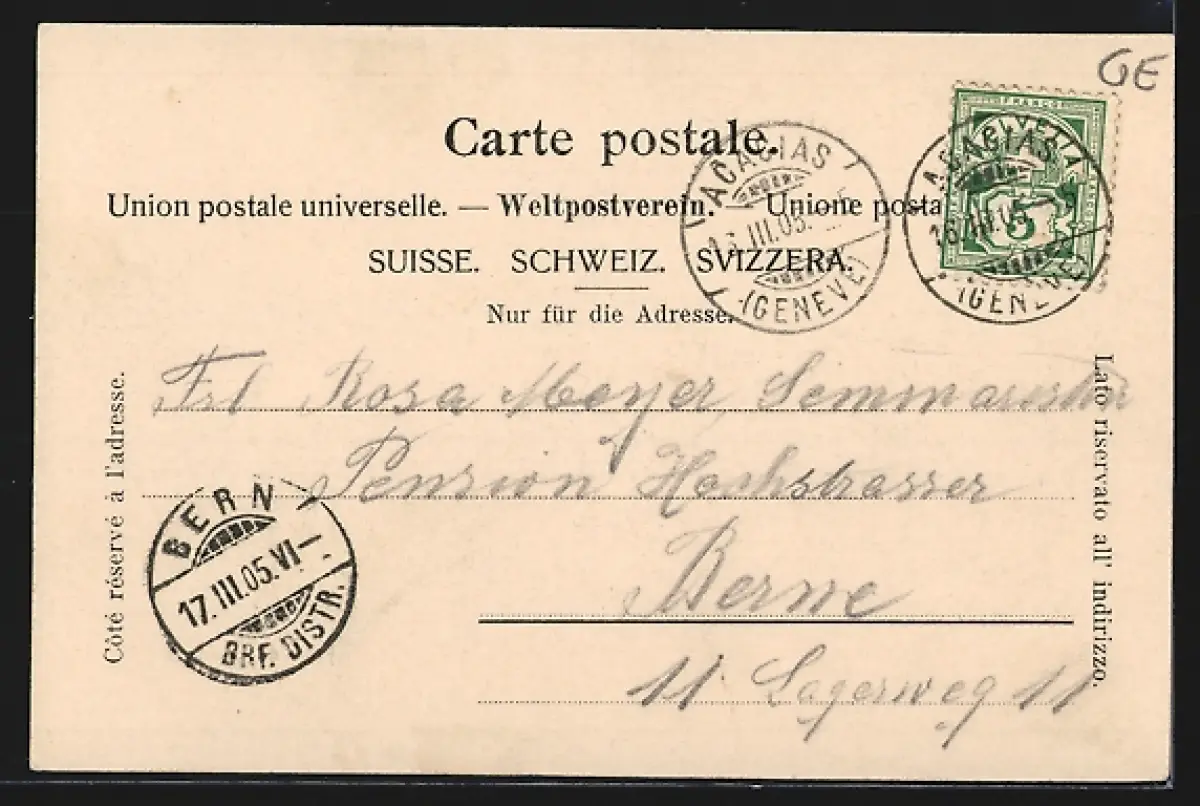 GE
Carte postale.
Union postale universelle. — Weltpostverein. Unione posta
SUISSE. SCHWEIZ. SVIZZERA.
Nur für die Adresse.
FRANCO
HELVETIA
5
ACACIAS
16.III.05.
(GENÈVE)
ACACIAS
16.III.05.
(GENÈVE)
Côté réservé à l'adresse.
Lato riservato all' indirizzo.
Frl Rosa Meyer,
Pension Hochstrasser
Berne
11 Lagerweg 11
BERN
17.III.05.VI—
BRF. DISTR.